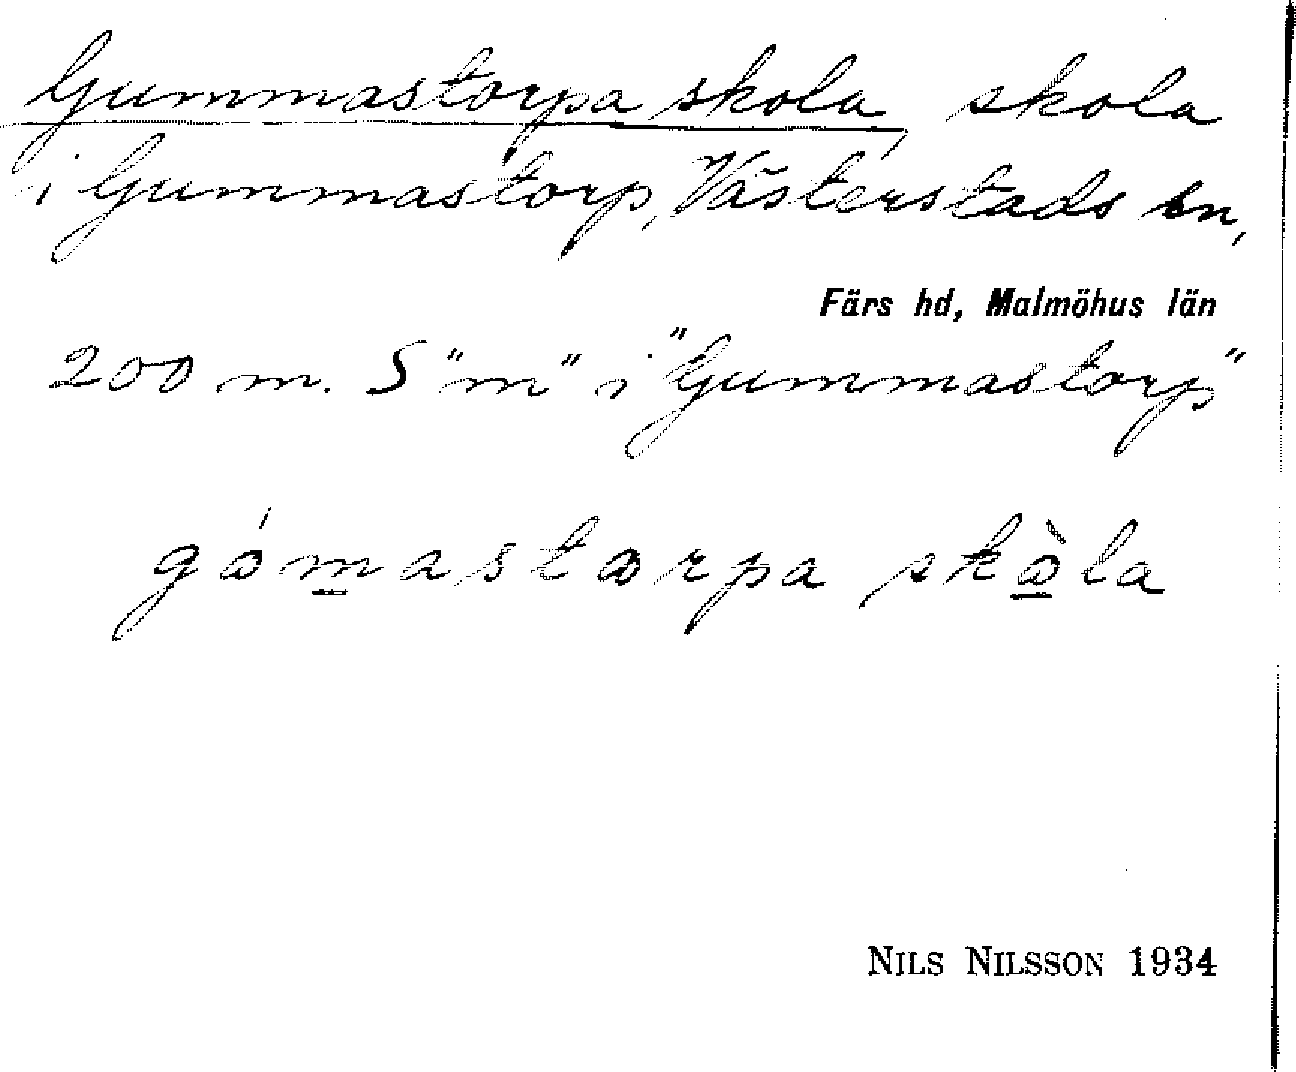 Gummastorpa skola, skola
i Gummastorp, Västerstads sn,
Färs hd, Malmöhus län
200 m. S "m" i "Gummastorp"
gómastorpa skòla
NILS NILSSON 1934